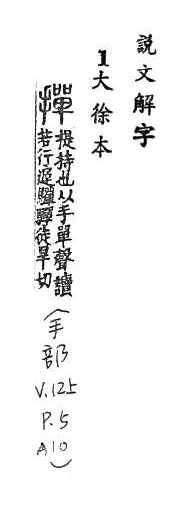 說文解字
1大徐本
撣 提持也从手單聲讀
若行遲驒驒徒旱切
(手部
V.125
P.5
A10)